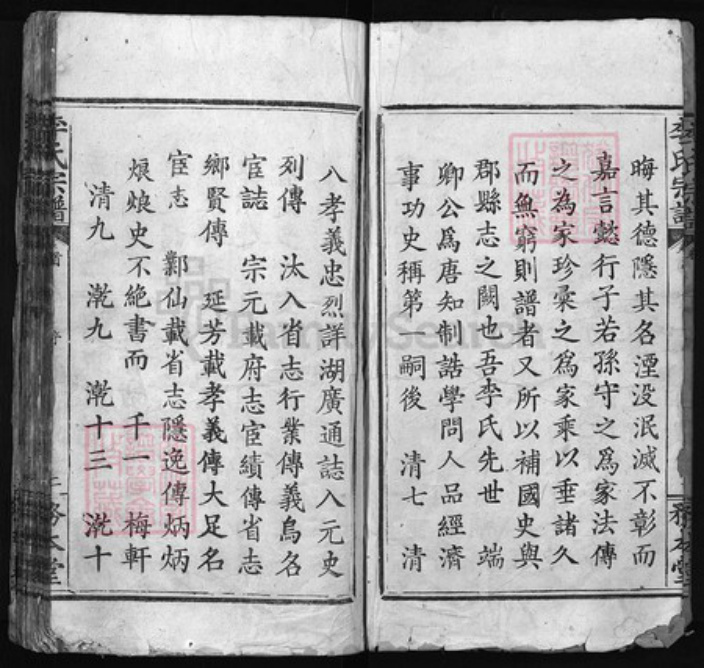 晦其德隱其名湮没泯滅不彰而
嘉言懿行子若孫守之爲家法傳
之為家珍彙之爲家乘以垂諸久
而無窮則譜者又所以補國史與
郡縣志之闕也吾李氏先世 端
卿公爲唐知制誥學問人品經濟
事功史稱第一嗣後 清七 清
八孝義忠烈詳湖廣通誌入元史
列傳 汰入省志行業傳義鳥名
宦誌 宗元載府志宦績傳省志
鄉賢傳 延芳載孝義傳大足名
宦志 鄴仙載省志隱逸傳炳炳
烺烺史不絕書而 千一 梅軒
清九 漖九 漖十三 漖十
李氏宗譜
務本堂
李氏宗譜
務本堂
FamilySearch